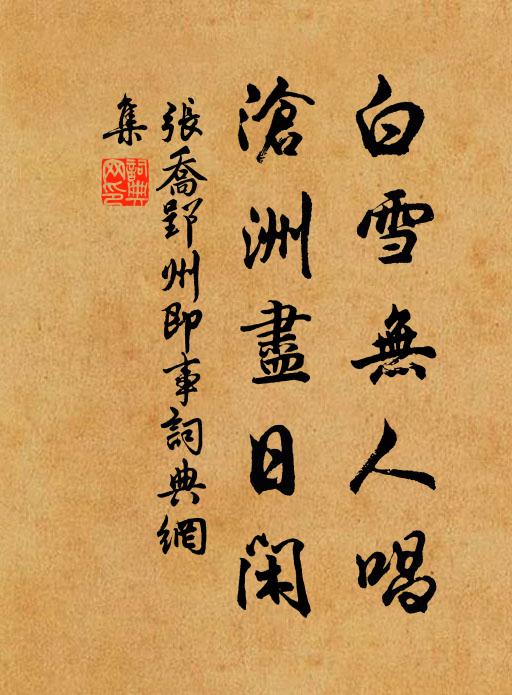 白雪無人唱
滄洲盡日閑
張喬郢州即事詞典網
集
詞典网印